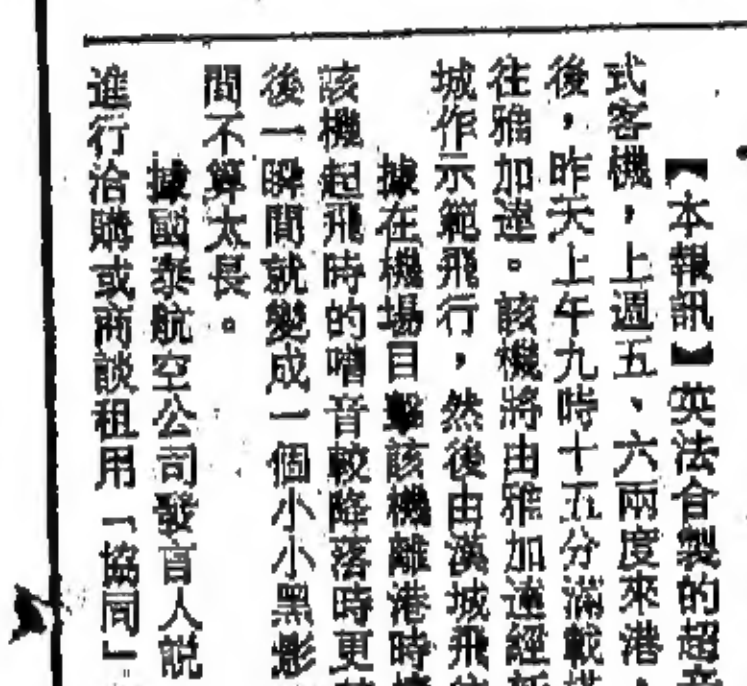 【本報訊】英法合製的超音
式客機，上週五、六兩度來港，
後，昨天上午九時十五分滿載搭
往雅加達。該機將由雅加達經新
城作示範飛行，然後由漢城飛往
據在機場目擊該機離港時
該機起飛時的嘈音較降落時更
後一瞬間就變成一個小小黑影
間不算太長。
據國泰航空公司發言人說
進行洽購或商談租用「協同」